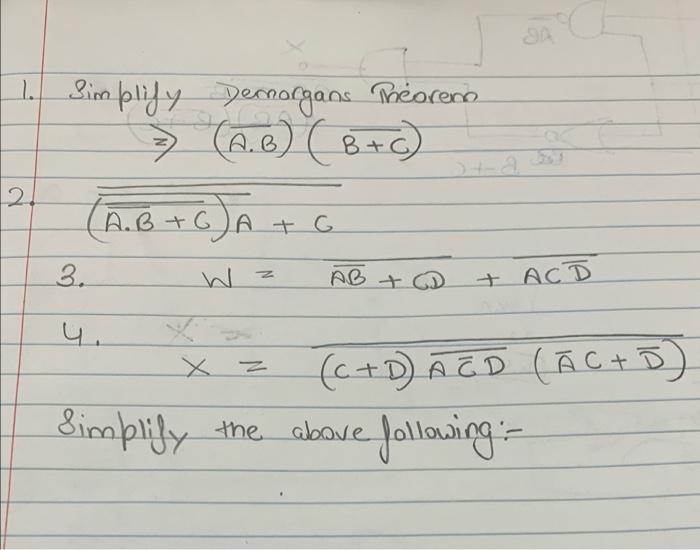 1. Simplify Demorgans Theorem
⇒ (A̅.̅B̅) (B̅+̅C̅)
2. \overline{\overline{(\overline{\overline{A.B} + C})A} + C}
3. W = \overline{\overline{AB} + CD} + \overline{AC\overline{D}}
4. X =
X = \overline{(C+D) \overline{A\overline{C}D} (\overline{A}C + \overline{D})}
Simplify the above following:-